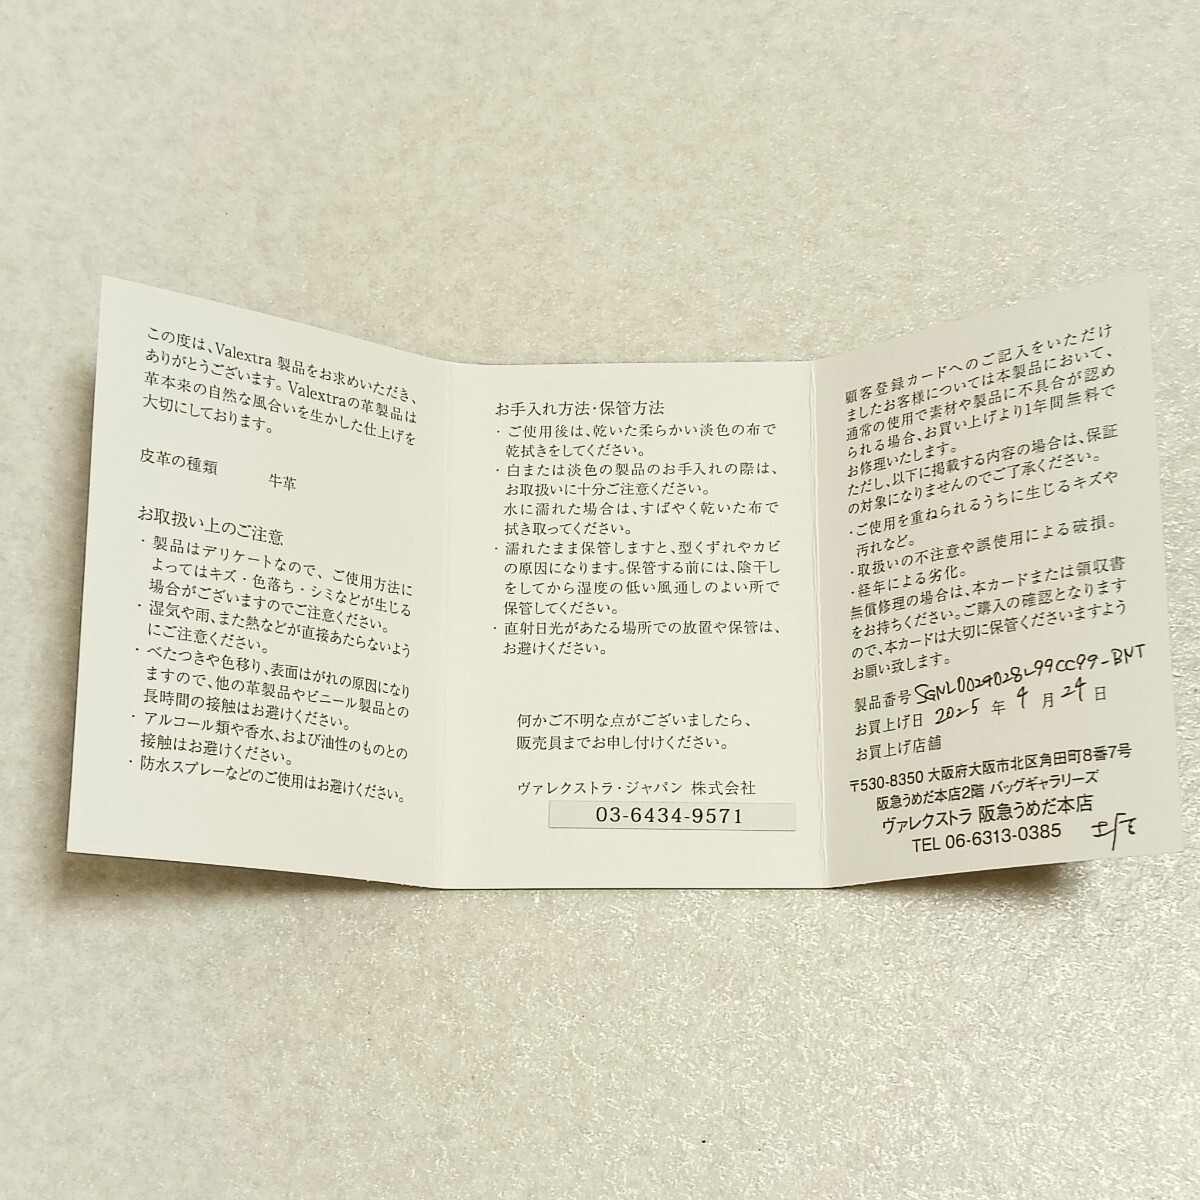 この度は、Valextra 製品をお求めいただき、
ありがとうございます。Valextraの革製品は
革本来の自然な風合いを生かした仕上げを
大切にしております。
皮革の種類
牛革
お取扱い上のご注意
・製品はデリケートなので、ご使用方法に
よってはキズ・色落ち・シミなどが生じる
場合がございますのでご注意ください。
・湿気や雨、また熱などが直接あたらないよう
にご注意ください。
・べたつきや色移り、表面はがれの原因になり
ますので、他の革製品やビニール製品との
長時間の接触はお避けください。
・アルコール類や香水、および油性のものとの
接触はお避けください。
・防水スプレーなどのご使用はお避けください。
お手入れ方法・保管方法
・ご使用後は、乾いた柔らかい淡色の布で
乾拭きをしてください。
・白または淡色の製品のお手入れの際は、
お取扱いに十分ご注意ください。
水に濡れた場合は、すばやく乾いた布で
拭き取ってください。
・濡れたまま保管しますと、型くずれやカビ
の原因になります。保管する前には、陰干し
をしてから湿度の低い風通しのよい所で
保管してください。
・直射日光があたる場所での放置や保管は、
お避けください。
何かご不明な点がございましたら、
販売員までお申し付けください。
ヴァレクストラ・ジャパン 株式会社
03-6434-9571
顧客登録カードへのご記入をいただけ
ましたお客様については本製品において、
通常の使用で素材や製品に不具合が認め
られる場合、お買い上げより1年間無料で
お修理いたします。
ただし、以下に掲載する内容の場合は、保証
の対象になりませんのでご了承ください。
・ご使用を重ねられるうちに生じるキズや
汚れなど。
・取扱いの不注意や誤使用による破損。
・経年による劣化。
無償修理の場合は、本カードまたは領収書
をお持ちください。ご購入の確認となります
ので、本カードは大切に保管くださいますよう
お願い致します。
製品番号 SGNL0024028L99CC99-BNT
お買上げ日 2025 年 4 月 24 日
お買上げ店舗
〒530-8350 大阪府大阪市北区角田町8番7号
阪急うめだ本店2階 バッグギャラリーズ
ヴァレクストラ 阪急うめだ本店
TEL 06-6313-0385